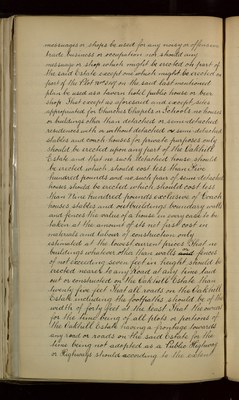 messuages or shops be used for any noisy or offensive
trade business or occupation nor should any
messuage or shop which might be erected on part of
the said Estate except one which might be erected on
part of the Plot on the said last mentioned
plan be used as a tavern hotel public house or beer
shop That except as aforesaid and except sites
appropriated for Churches Chapels or Schools no house
or buildings other than detached or semi detached
residences with or without detached or semi detached
stables and coach houses for private purposes only
should be erected upon any part of the Oakhill
Estate and that no such detached house should
be erected which should cost less than Five
hundred pounds and no such pair of semi detached
houses should be erected which should cost less
than Nine hundred pounds exclusive of Coach
houses stables and outbuildings boundary walls
and fences the value of a house in every case to be
taken at the amount of its net first cost in
materials and labour of construction only
estimated at the lowest current prices That no
buildings whatever other than walls or fences
of not exceeding seven feet in height should be
erected nearer to any Road at any time laid
out or constructed on the Oakhill Estate than
twenty five feet That all roads on the Oakhill
Estate including the footpaths should be of the
width of forty feet at the least That the owner
for the time being of all plots or portions of
the Oakhill Estate having a frontage towards
any road or roads on the said Estate for the
time being not adopted as a Public Highway
or Highways should according to the extent